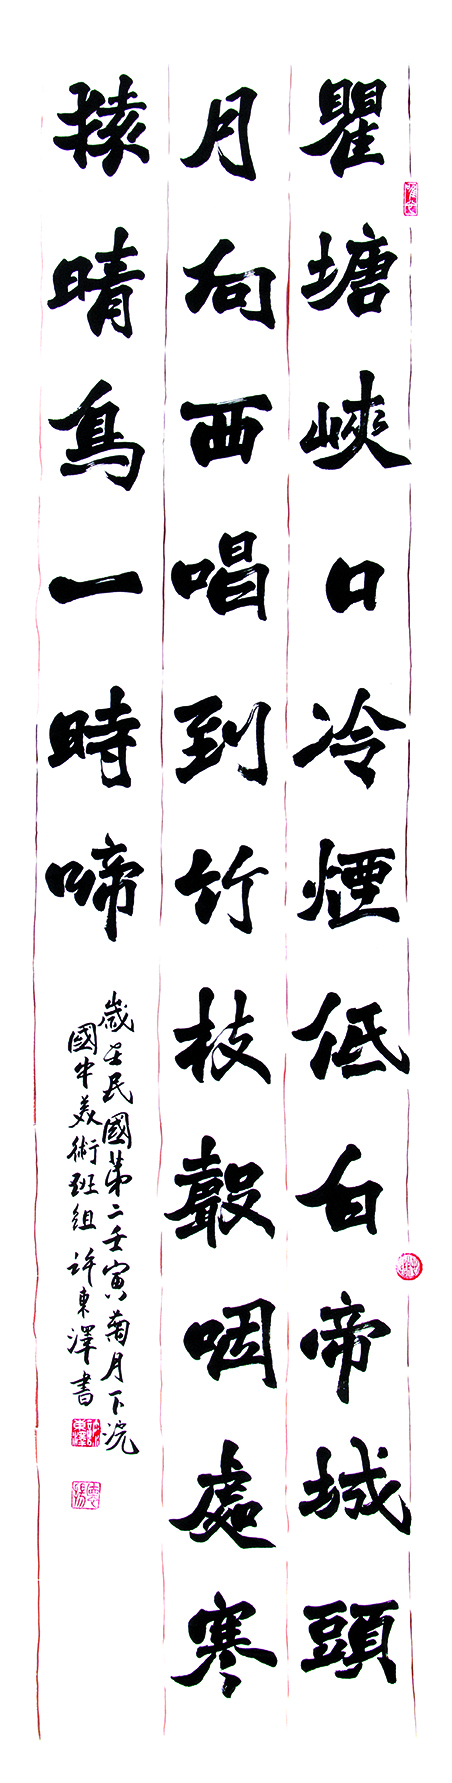 瞿塘峽口冷煙低白帝城頭
月向西唱到竹枝聲咽處寒
猿晴鳥一時啼
歲在民國第二壬寅菊月下浣
國中美術班組 許東澤書